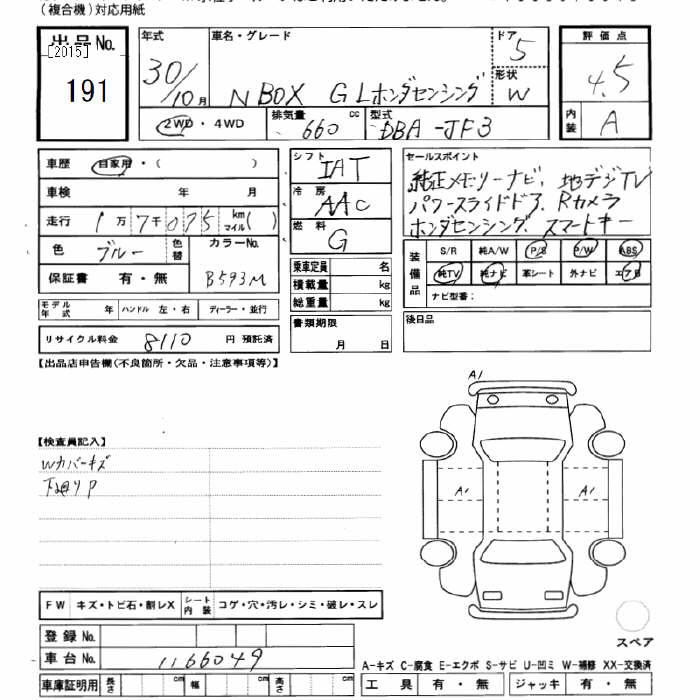 (複合機)対応用紙
出品No.
[2015]
191
年式
30/10月
車名・グレード
N BOX G Lホンダセンシング
ドア
5
形状
W
評価点
4.5
内装
A
2WD・4WD
排気量
660 cc
型式
DBA-JF3
車歴
自家用・( )
車検 年 月
走行 1万7千075 km マイル( )
色
ブルー
色替
カラーNo.
B593M
保証書 有・無
シフト
IAT
冷房
AAC
燃料
G
乗車定員 名
積載量 kg
総重量 kg
書類期限
月 日
セールスポイント
純正メモリーナビ、地デジTV
パワースライドドア、Rカメラ
ホンダセンシング、スマートキー
装備品
S/R 純A/W P/S P/W ABS
純TV 純ナビ 革シート 外ナビ エアB
ナビ型番:
後日品
モデル年式 年 ハンドル 左・右 ディーラー・並行
リサイクル料金 8110 円 預託済
【出品店申告欄(不良箇所・欠品・注意事項等)】
【検査員記入】
Wカバーキズ
下廻りP
A1
A1
A1
スペア
FW キズ・トビ石・割レX シート内装 コゲ・穴・汚レ・シミ・破レ・スレ
登録No.
車台No. 1166049
車庫証明用 長さ cm 幅 cm 高さ cm
A-キズ C-腐食 E-エクボ S-サビ U-凹ミ W-補修 XX-交換済
工具 有・無 ジャッキ 有・無